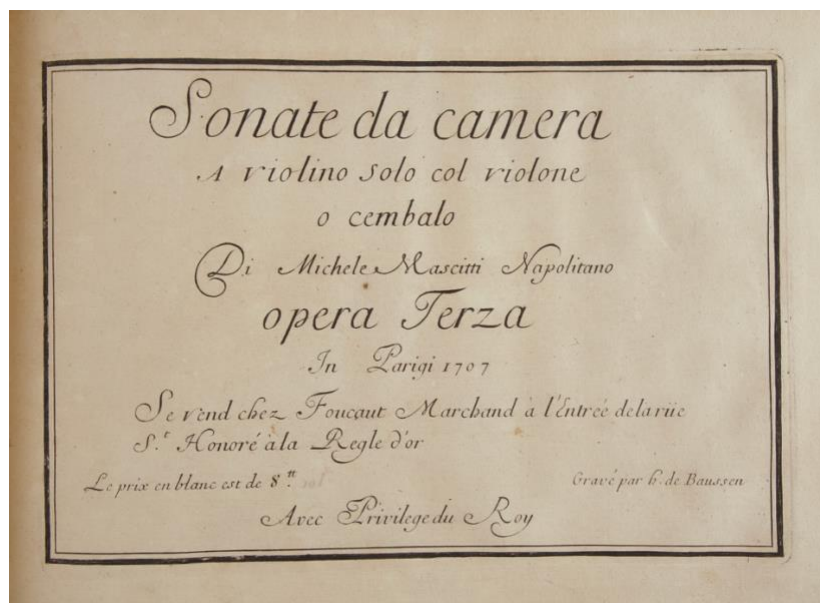 Sonate da camera
A violino solo col violone
o cembalo
Di Michele Mascitti Napolitano
opera Terza
In Parigi 1707
Se vend chez Foucaut Marchand à l'Entrée de la rüe
S.t Honoré à la Regle d'or
Le prix en blanc est de 8.tt
Gravé par h. de Baussen
Avec Privilege du Roy